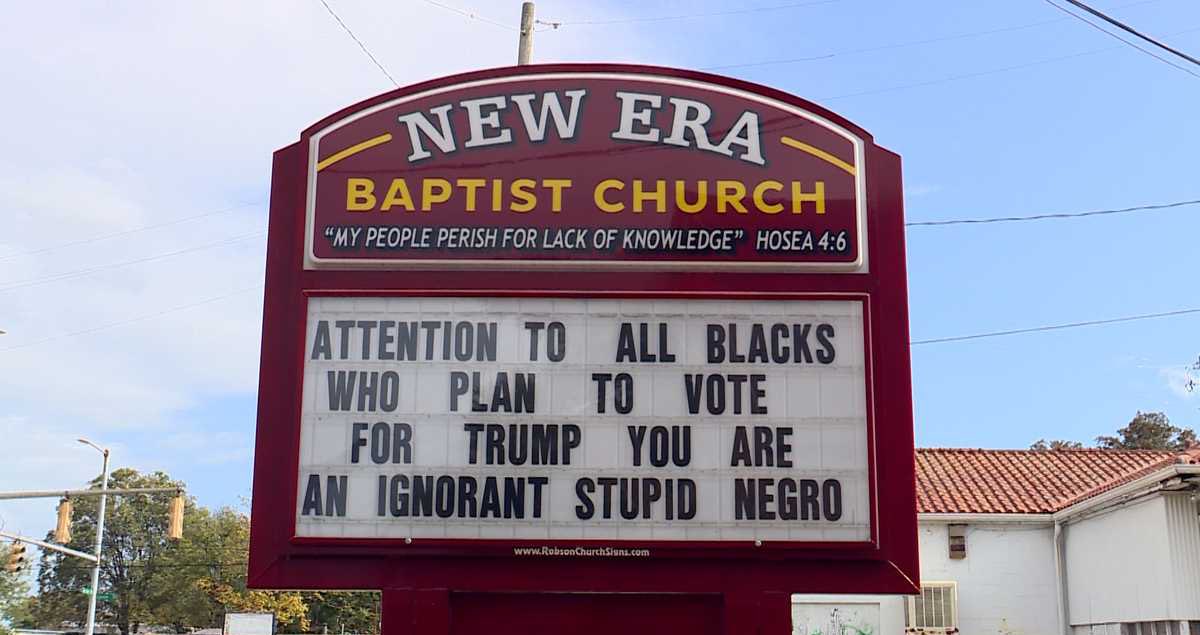 NEW ERA
BAPTIST CHURCH
"MY PEOPLE PERISH FOR LACK OF KNOWLEDGE" HOSEA 4:6
ATTENTION TO ALL BLACKS
WHO PLAN TO VOTE
FOR TRUMP YOU ARE
AN IGNORANT STUPID NEGRO
www.RobsonChurchSigns.com